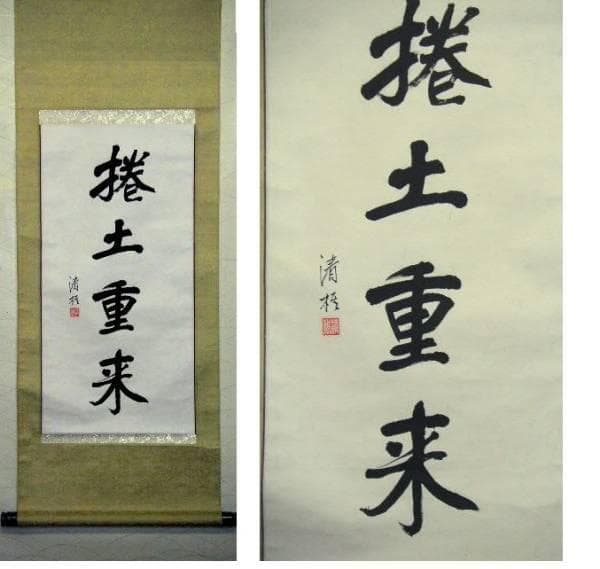 捲土重来
清
捲土重来
清